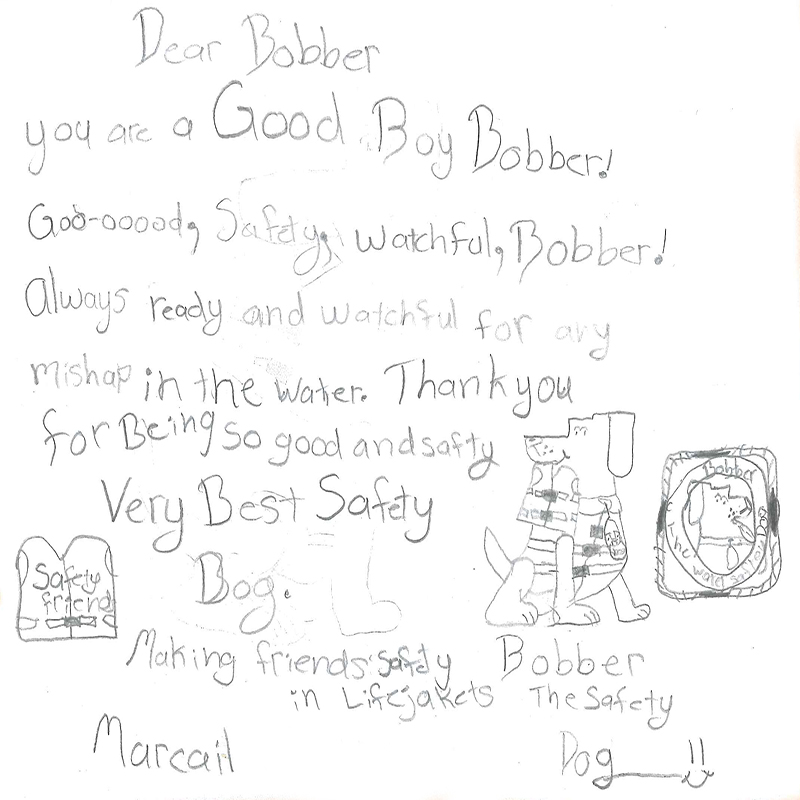 Dear Bobber
you are a Good Boy Bobber!
Goo-ooood, Safety, watchful, Bobber!
Always ready and watchful for any
mishap in the water. Thank you
for Being so good and safty
Very Best Safety
Bog.
Safety
friend
Bobber
The Water Safety Dog
Making friends safety
in Lifejakets
Bobber
The Safety
Dog
Marcail